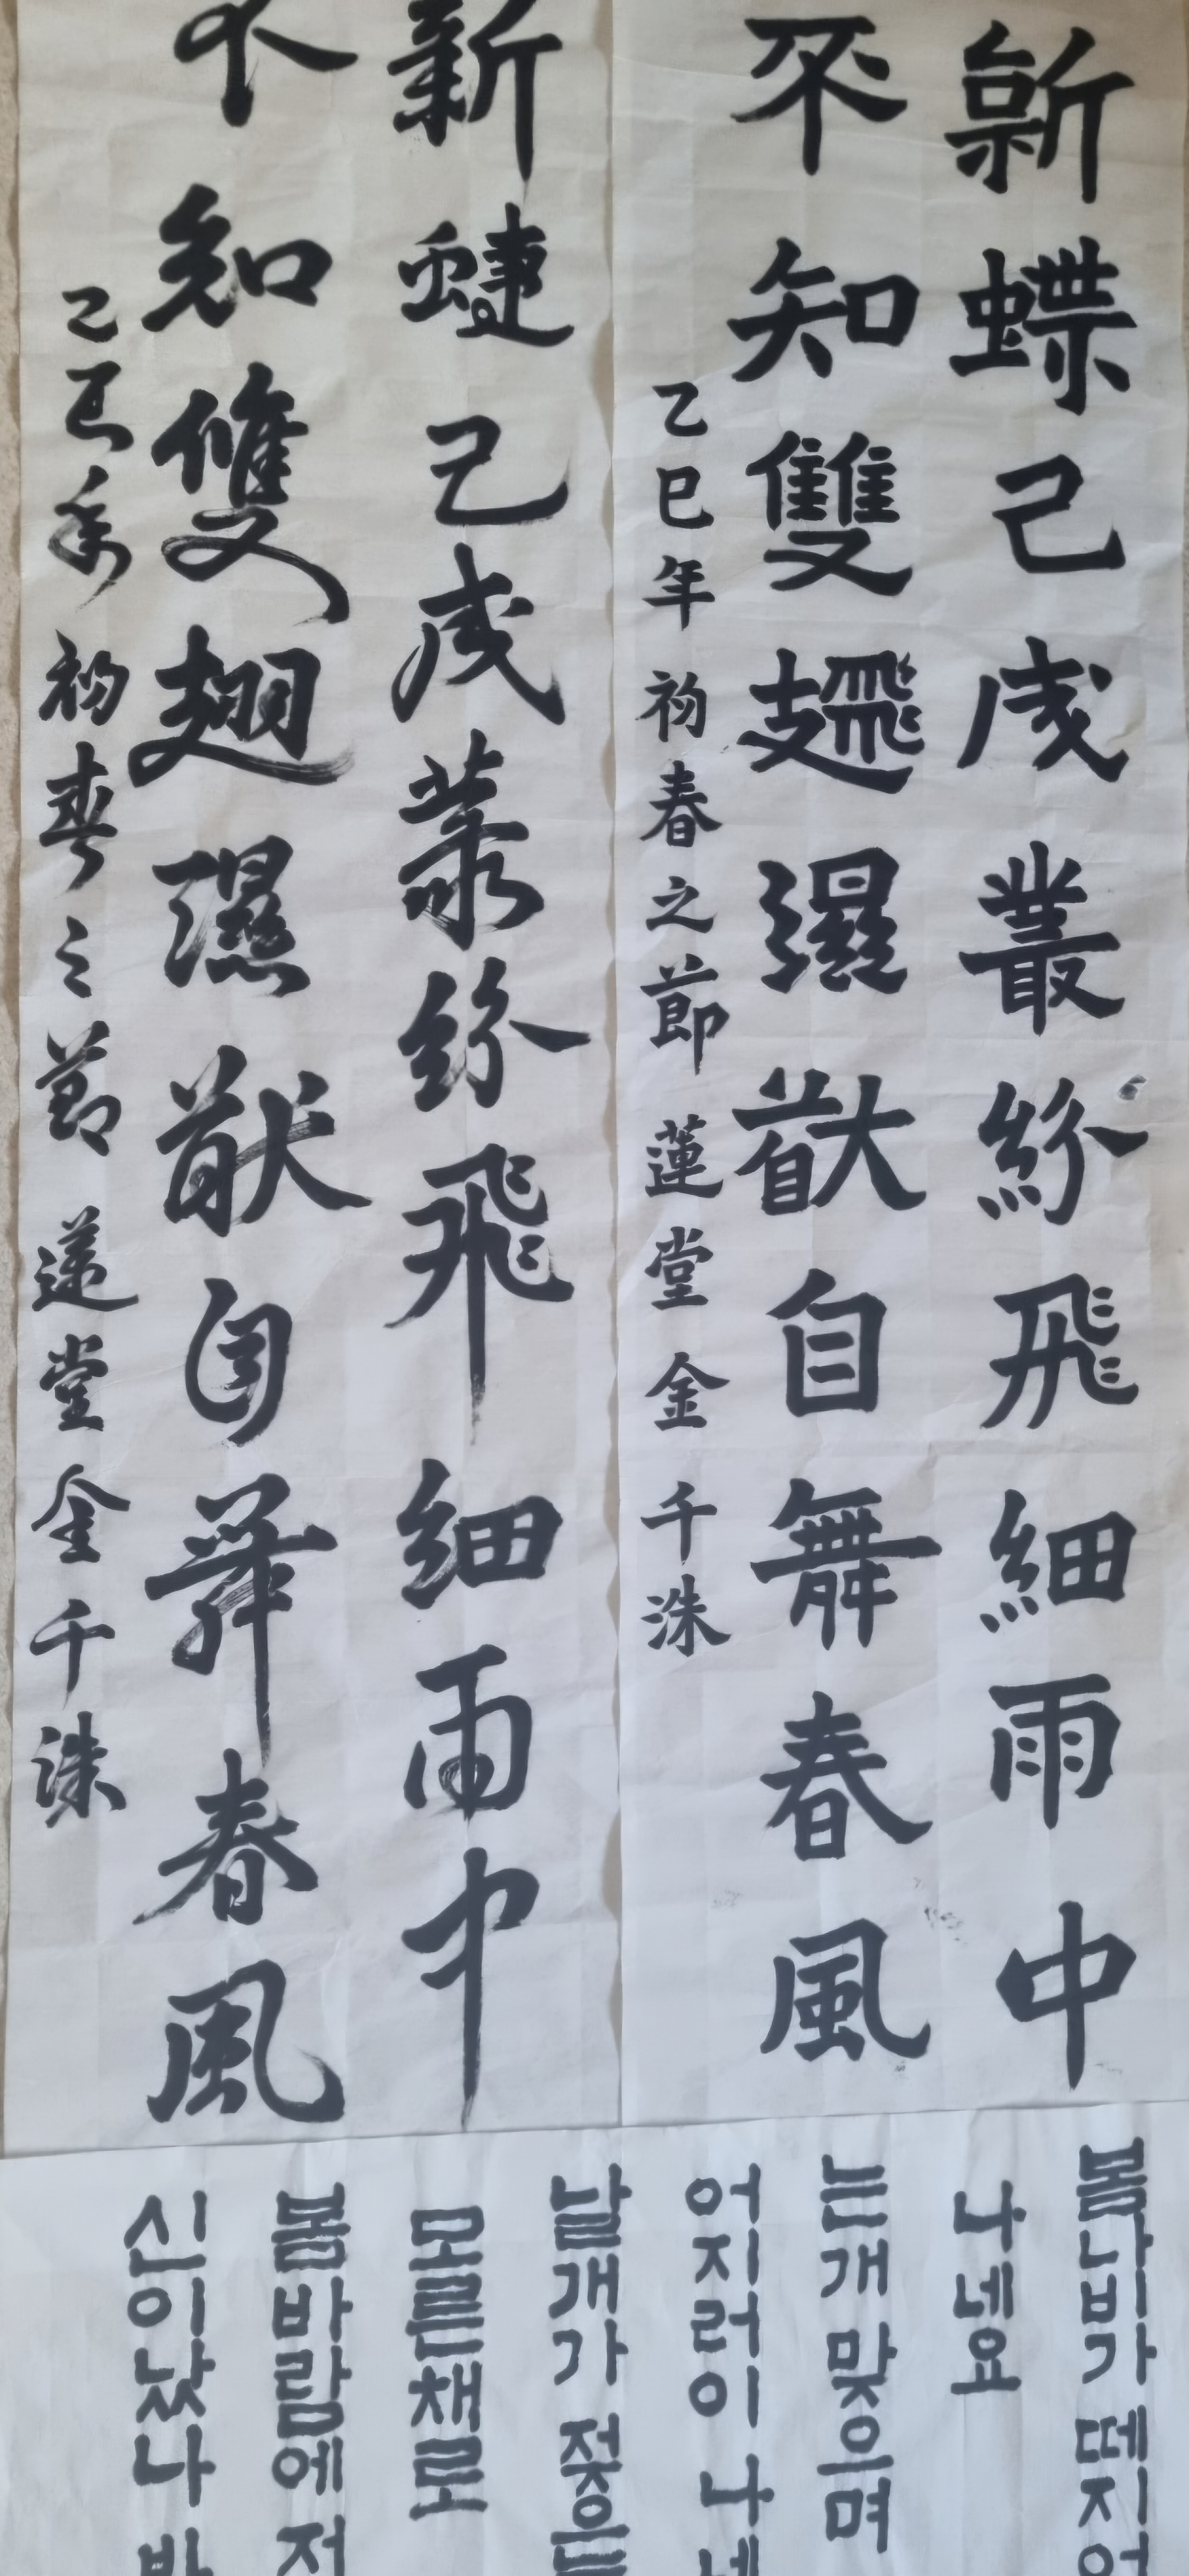 新蝶己成叢紛飛細雨中
不知雙翅濕猷自舞春風
乙巳年 初春之節 蓮堂 金千洙
新蝶己成叢紛飛細雨中
不知雙翅濕猷自舞春風
乙巳年 初春之節 蓮堂 金千洙
봄나비가 떼지어
나네요
는개 맞으며
어지러이 나네
날개가 젖은
모른채로
봄바람에
신이났나